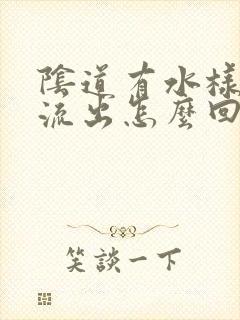 陰道有水樣
流出怎麼回
笑談一下